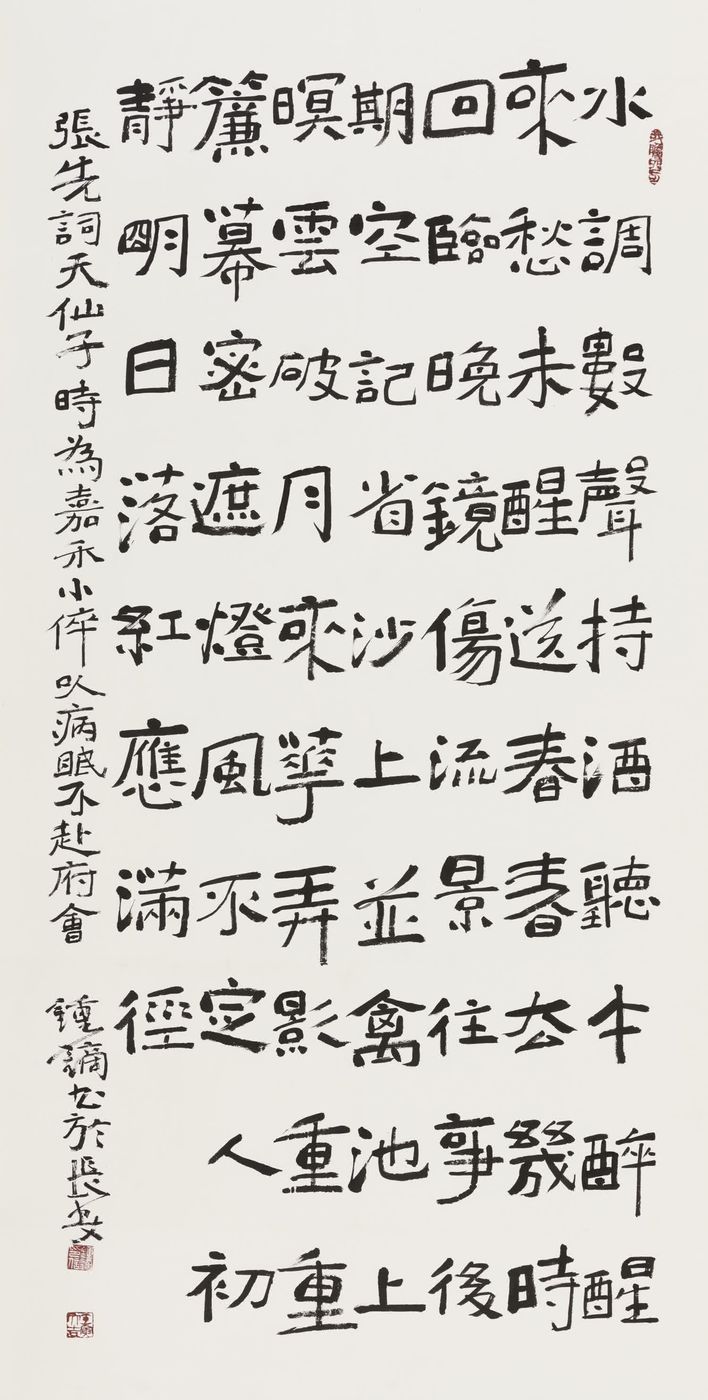 水調數聲持酒聽午醉醒
來愁未醒送春春去幾時
回臨晚鏡傷流景往事後
期空記省沙上並禽池上
暝雲破月來華弄影重重
簾幕密遮燈風不定人初
靜明日落紅應滿徑
張先詞天仙子時為嘉禾小倅以病眠不赴府會 鍾鏑书於長安